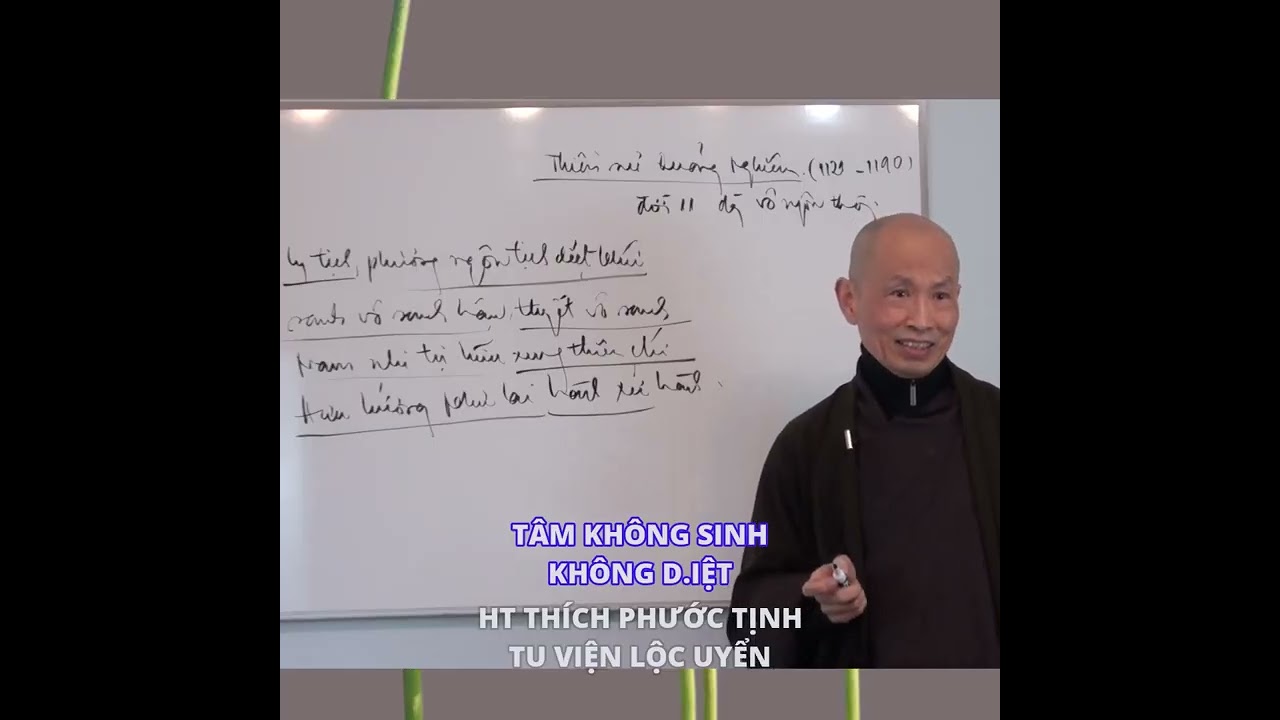 Thiền sư Quảng Nghiêm (1122 - 1190)
đời 11 dg vô ngôn thông.
ly tịch, phương ngôn tịch diệt khứ
sanh vô sanh hậu, thuyết vô sanh
nam nhi tự hữu xung thiên chí
Hưu hướng như lai hành xứ hành.
TÂM KHÔNG SINH
KHÔNG D.IỆT
HT THÍCH PHƯỚC TỊNH
TU VIỆN LỘC UYỂN